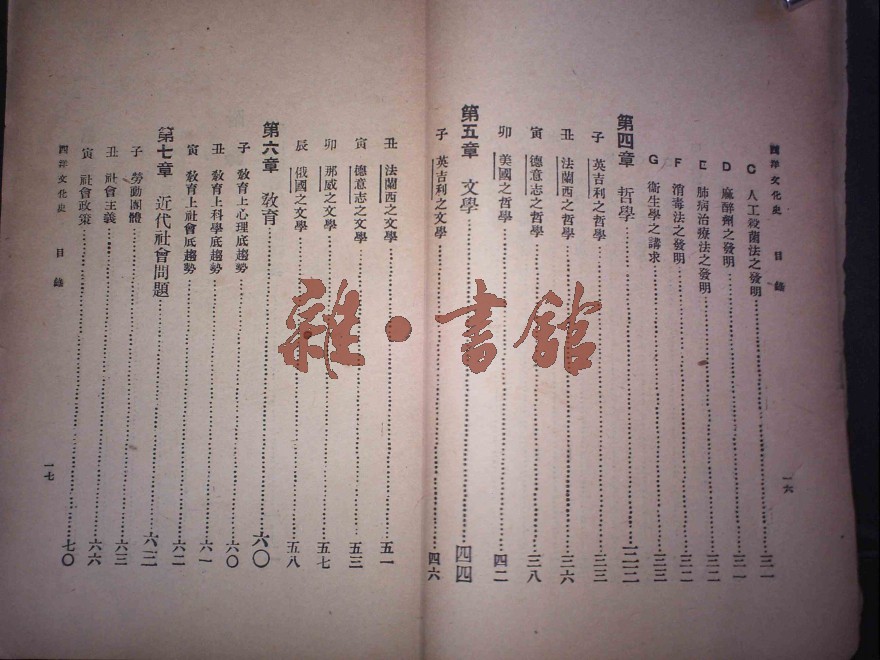 西洋文化史 目錄
C 人工殺菌法之發明 三一
D 麻醉劑之發明 三一
E 肺病治療法之發明 三二
F 消毒法之發明 三二
G 衛生學之講求 三三
第四章 哲學 三三
子 英吉利之哲學 三三
丑 法蘭西之哲學 三六
寅 德意志之哲學 三八
卯 美國之哲學 四二
第五章 文學 四四
子 英吉利之文學 四六
一六
丑 法蘭西之文學 五一
寅 德意志之文學 五三
卯 那威之文學 五七
辰 俄國之文學 五八
第六章 敎育 六〇
子 敎育上心理底趨勢 六〇
丑 敎育上科學底趨勢 六一
寅 敎育上社會底趨勢 六二
第七章 近代社會問題 六二
子 勞動團體 六三
丑 社會主義 六六
寅 社會政策 七〇
西洋文化史 目錄
一七
雜·書館